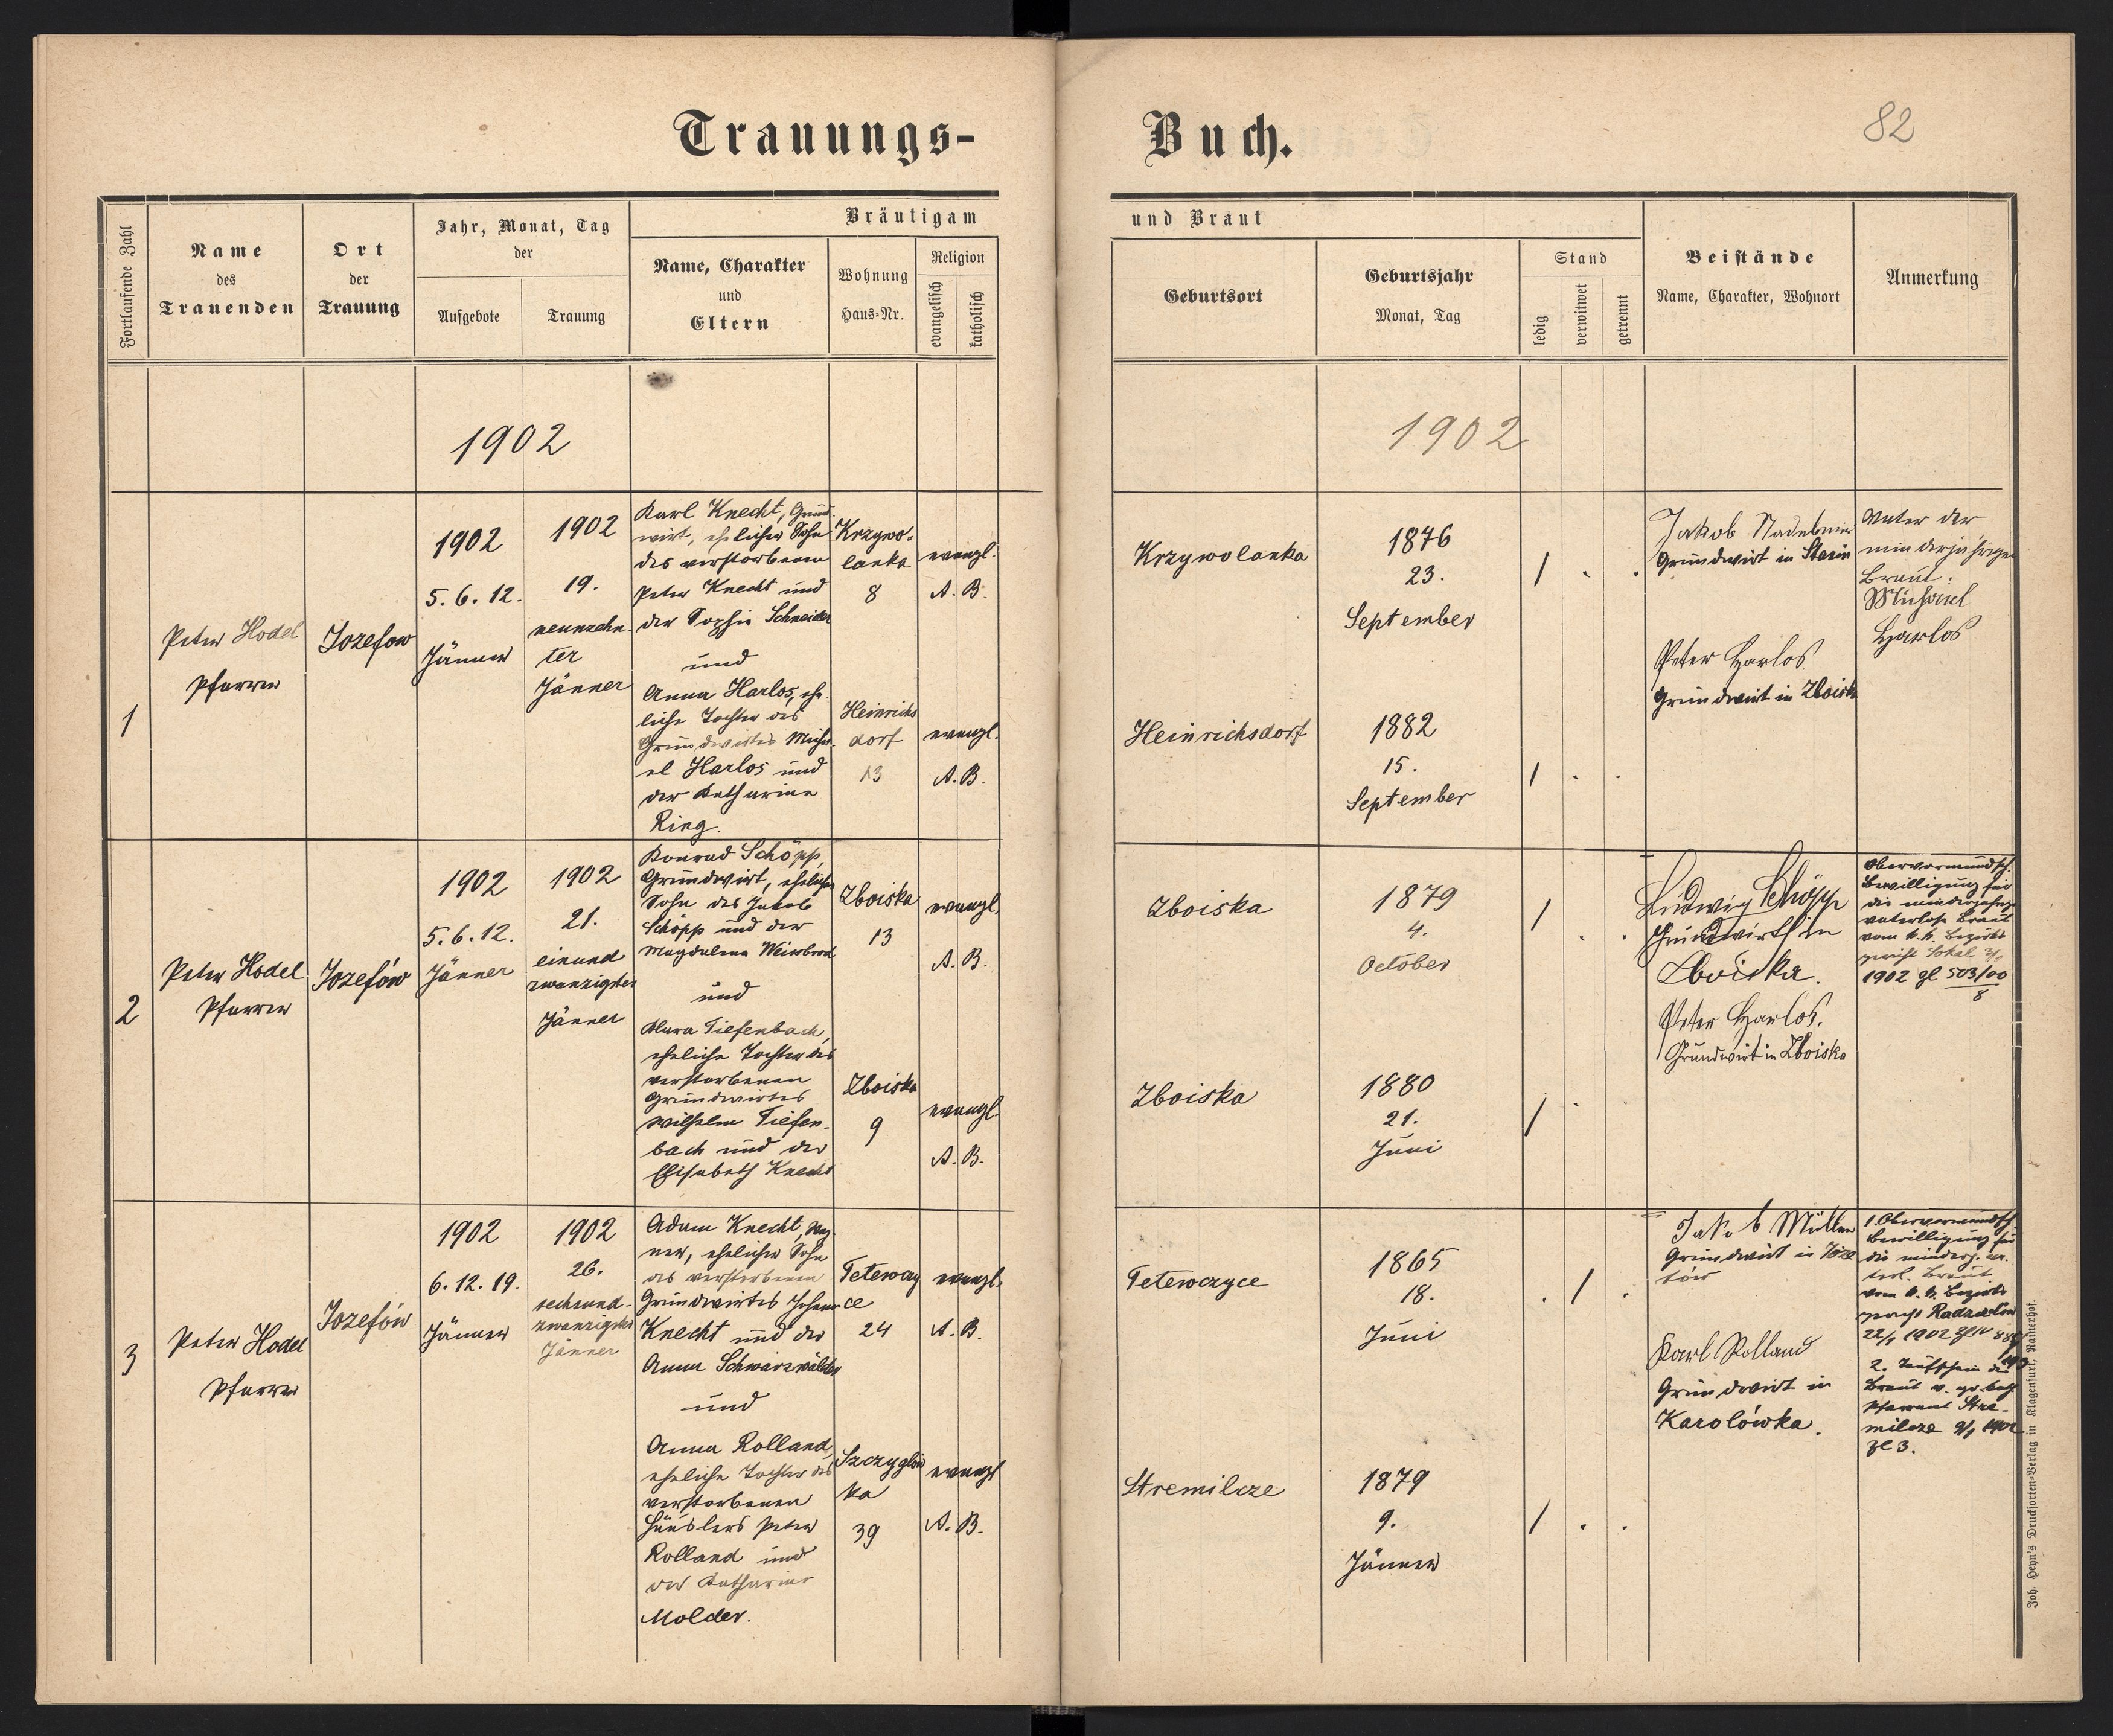 Trauungs-
Buch.
82
Fortlaufende Zahl
Name
des
Trauenden
Ort
der
Trauung
Jahr, Monat, Tag
der
Aufgebote
Trauung
Bräutigam
Name, Charakter
und
Eltern
Wohnung
Haus-Nr.
Religion
evangelisch
katholisch
und Braut
Geburtsort
Geburtsjahr
Monat, Tag
Stand
ledig
verwitwet
getrennt
Beistände
Name, Charakter, Wohnort
Anmerkung
1902
1902
1
Peter Hodel
Pfarrer
Jozefow
1902
5. 6. 12.
Jänner
1902
19.
neunzehn-
ter
Jänner
Karl Knecht, Grund-
wirt, ehelicher Sohn
des verstorbenen
Peter Knecht und
der Sophie Schneider
und
Anna Harlos, ehe-
liche Tochter des
Grundwirtes Micha-
el Harlos und
der Katharine
Ring.
Krzywo-
lanka
8
Heinrichs
dorf
13
evangl.
A. B.
evangl.
A. B.
Krzywolanka
1876
23.
September
Heinrichsdorf
1882
15.
September
Jakob
Grundwirt in
Peter Harlos
Grundwirt in Zboiska
Vater der
minderjährigen
Braut:
Michael
Harlos
2
Peter Hodel
Pfarrer
Jozefów
1902
5. 6. 12.
Jänner
1902
21.
einund
zwanzigster
Jänner
Konrad Schöpp,
Grundwirt, ehelicher
Sohn des Jakob
Schöpp und der
Magdalena
und
Klara Tiefenbach,
eheliche Tochter des
verstorbenen
Grundwirtes
Wilhelm Tiefen-
bach und der
Elisabeth Knecht
Zboiska
13
Zboiska
9
evangl.
A. B.
evangl.
A. B.
Zboiska
1879
4.
October
Zboiska
1880
21.
Juni
Ludwig Schöpp
Grundwirth in
Zboiska.
Peter Harlos.
Grundwirt in Zboiska
Obervormundsch.
Bewilligung für
die minderjährige
vaterlose Braut
vom k. k. Bezirks
gericht Sokal
1902 zl 503/00
8
3
Peter Hodel
Pfarrer
Jozefów
1902
6. 12. 19.
Jänner
1902
26.
sechsund-
zwanzigster
Jänner
Adam Knecht,
ehelicher Sohn
des verstorbenen
Grundwirtes Johann
Knecht und der
Anna Schwarzwälder
und
Anna Rolland,
eheliche Tochter des
verstorbenen
Häuslers Peter
Rolland und
der Katharine
Molder.
Tetewczy
ce
24
Szczyglow
ka
39
evangl.
A. B.
evangl
A. B.
Tetewczyce
1865
18.
Juni
Stremilcze
1879
9.
Jänner
Jakob Müller
Grundwirt in Joze
fów
Karl Rolland
Grundwirt in
Karolówka.
1. Obervormundsch.
Bewilligung für
die minderj. va-
terl. Braut
vom k. k. Bezirks
gericht Radziechów
22/1 1902
2. Taufschein der
Braut v. gr. kath.
Pfarramt Stre-
milcze 9/1 1902
zl 3.
Joh. Heyn's Drucksorten-Verlag in Klagenfurt, Rainerhof.